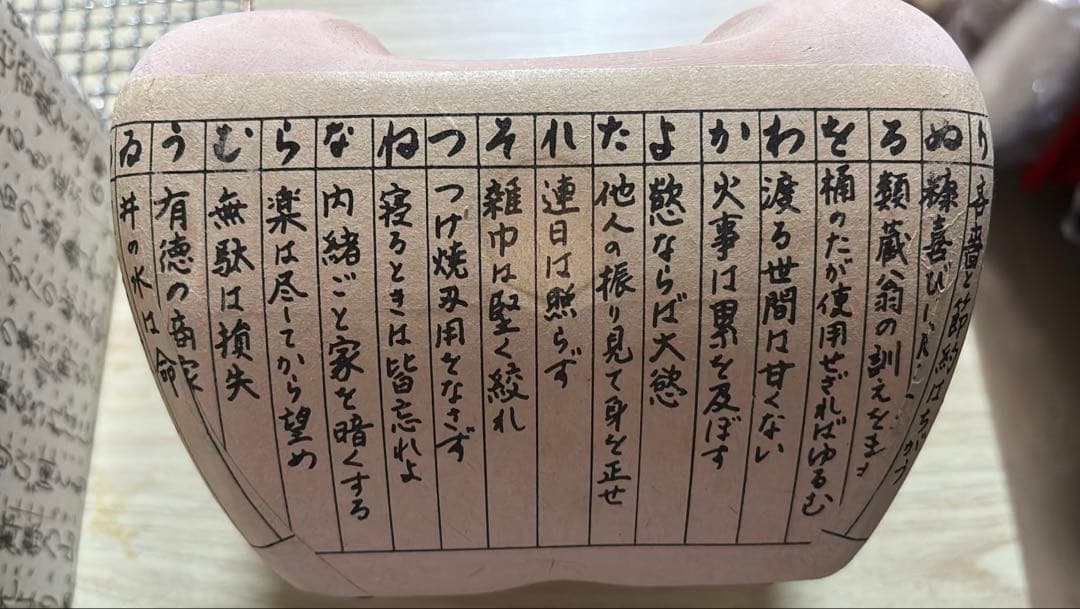 り 吝嗇と節約はちがう
ぬ 糠喜び
る 類蔵翁の訓えを
を 桶のたが使用せざればゆるむ
わ 渡る世間は甘くない
か 火事は累を及ぼす
よ 慾ならば大慾
た 他人の振り見て身を正せ
れ 連日は照らず
そ 雑巾は堅く絞れ
つ つけ焼刃用をなさず
ね 寝るときは皆忘れよ
な 内緒ごと家を暗くする
ら 楽は尽してから望め
む 無駄は損失
う 有徳の商家
ゐ 井の水は命